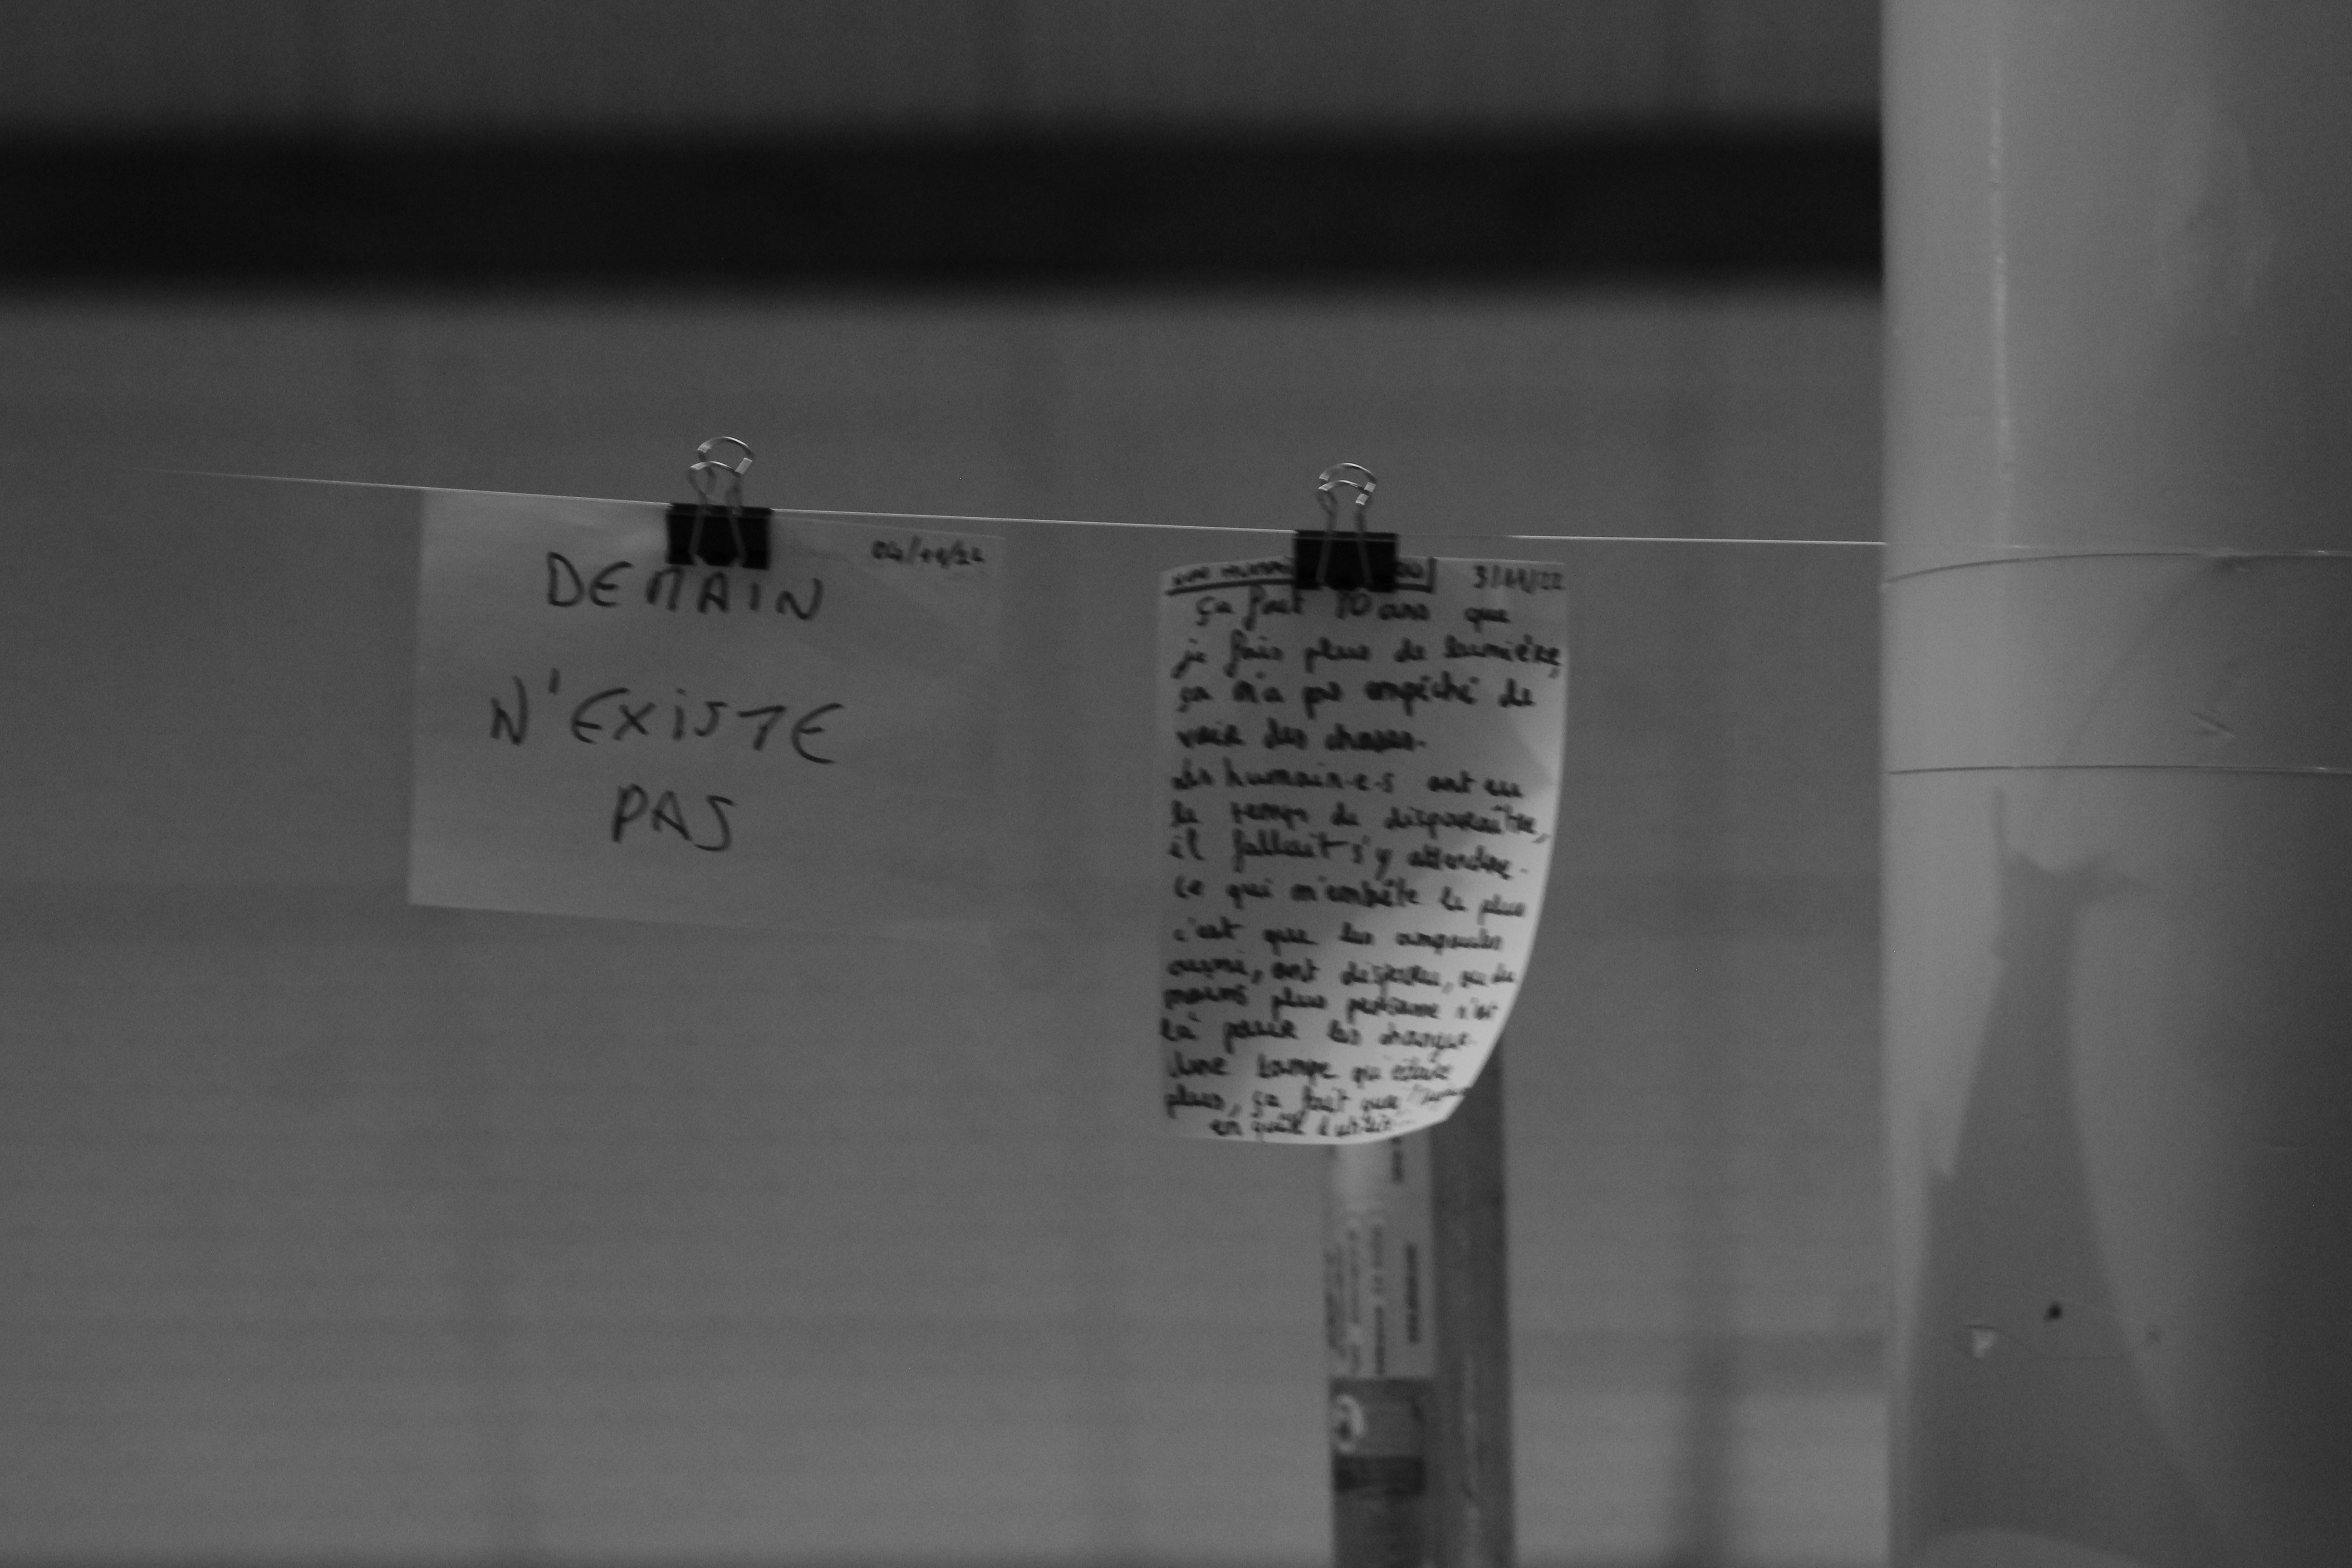 04/11/22
DEMAIN
N'EXISTE
PAS
3/11/22
ça fait 10 ans que
je fais plus de lumière,
ça m'a pas empêché de
voir des choses.
Les humain-e-s ont eu
le temps de disparaître,
il fallait s'y attendre.
Ce qui m'embête le plus
c'est que les ampoules
aussi, ont disparu, ou du
moins plus personne n'est
là pour les changer.
Une lampe qui éclaire
plus, ça fait que
en